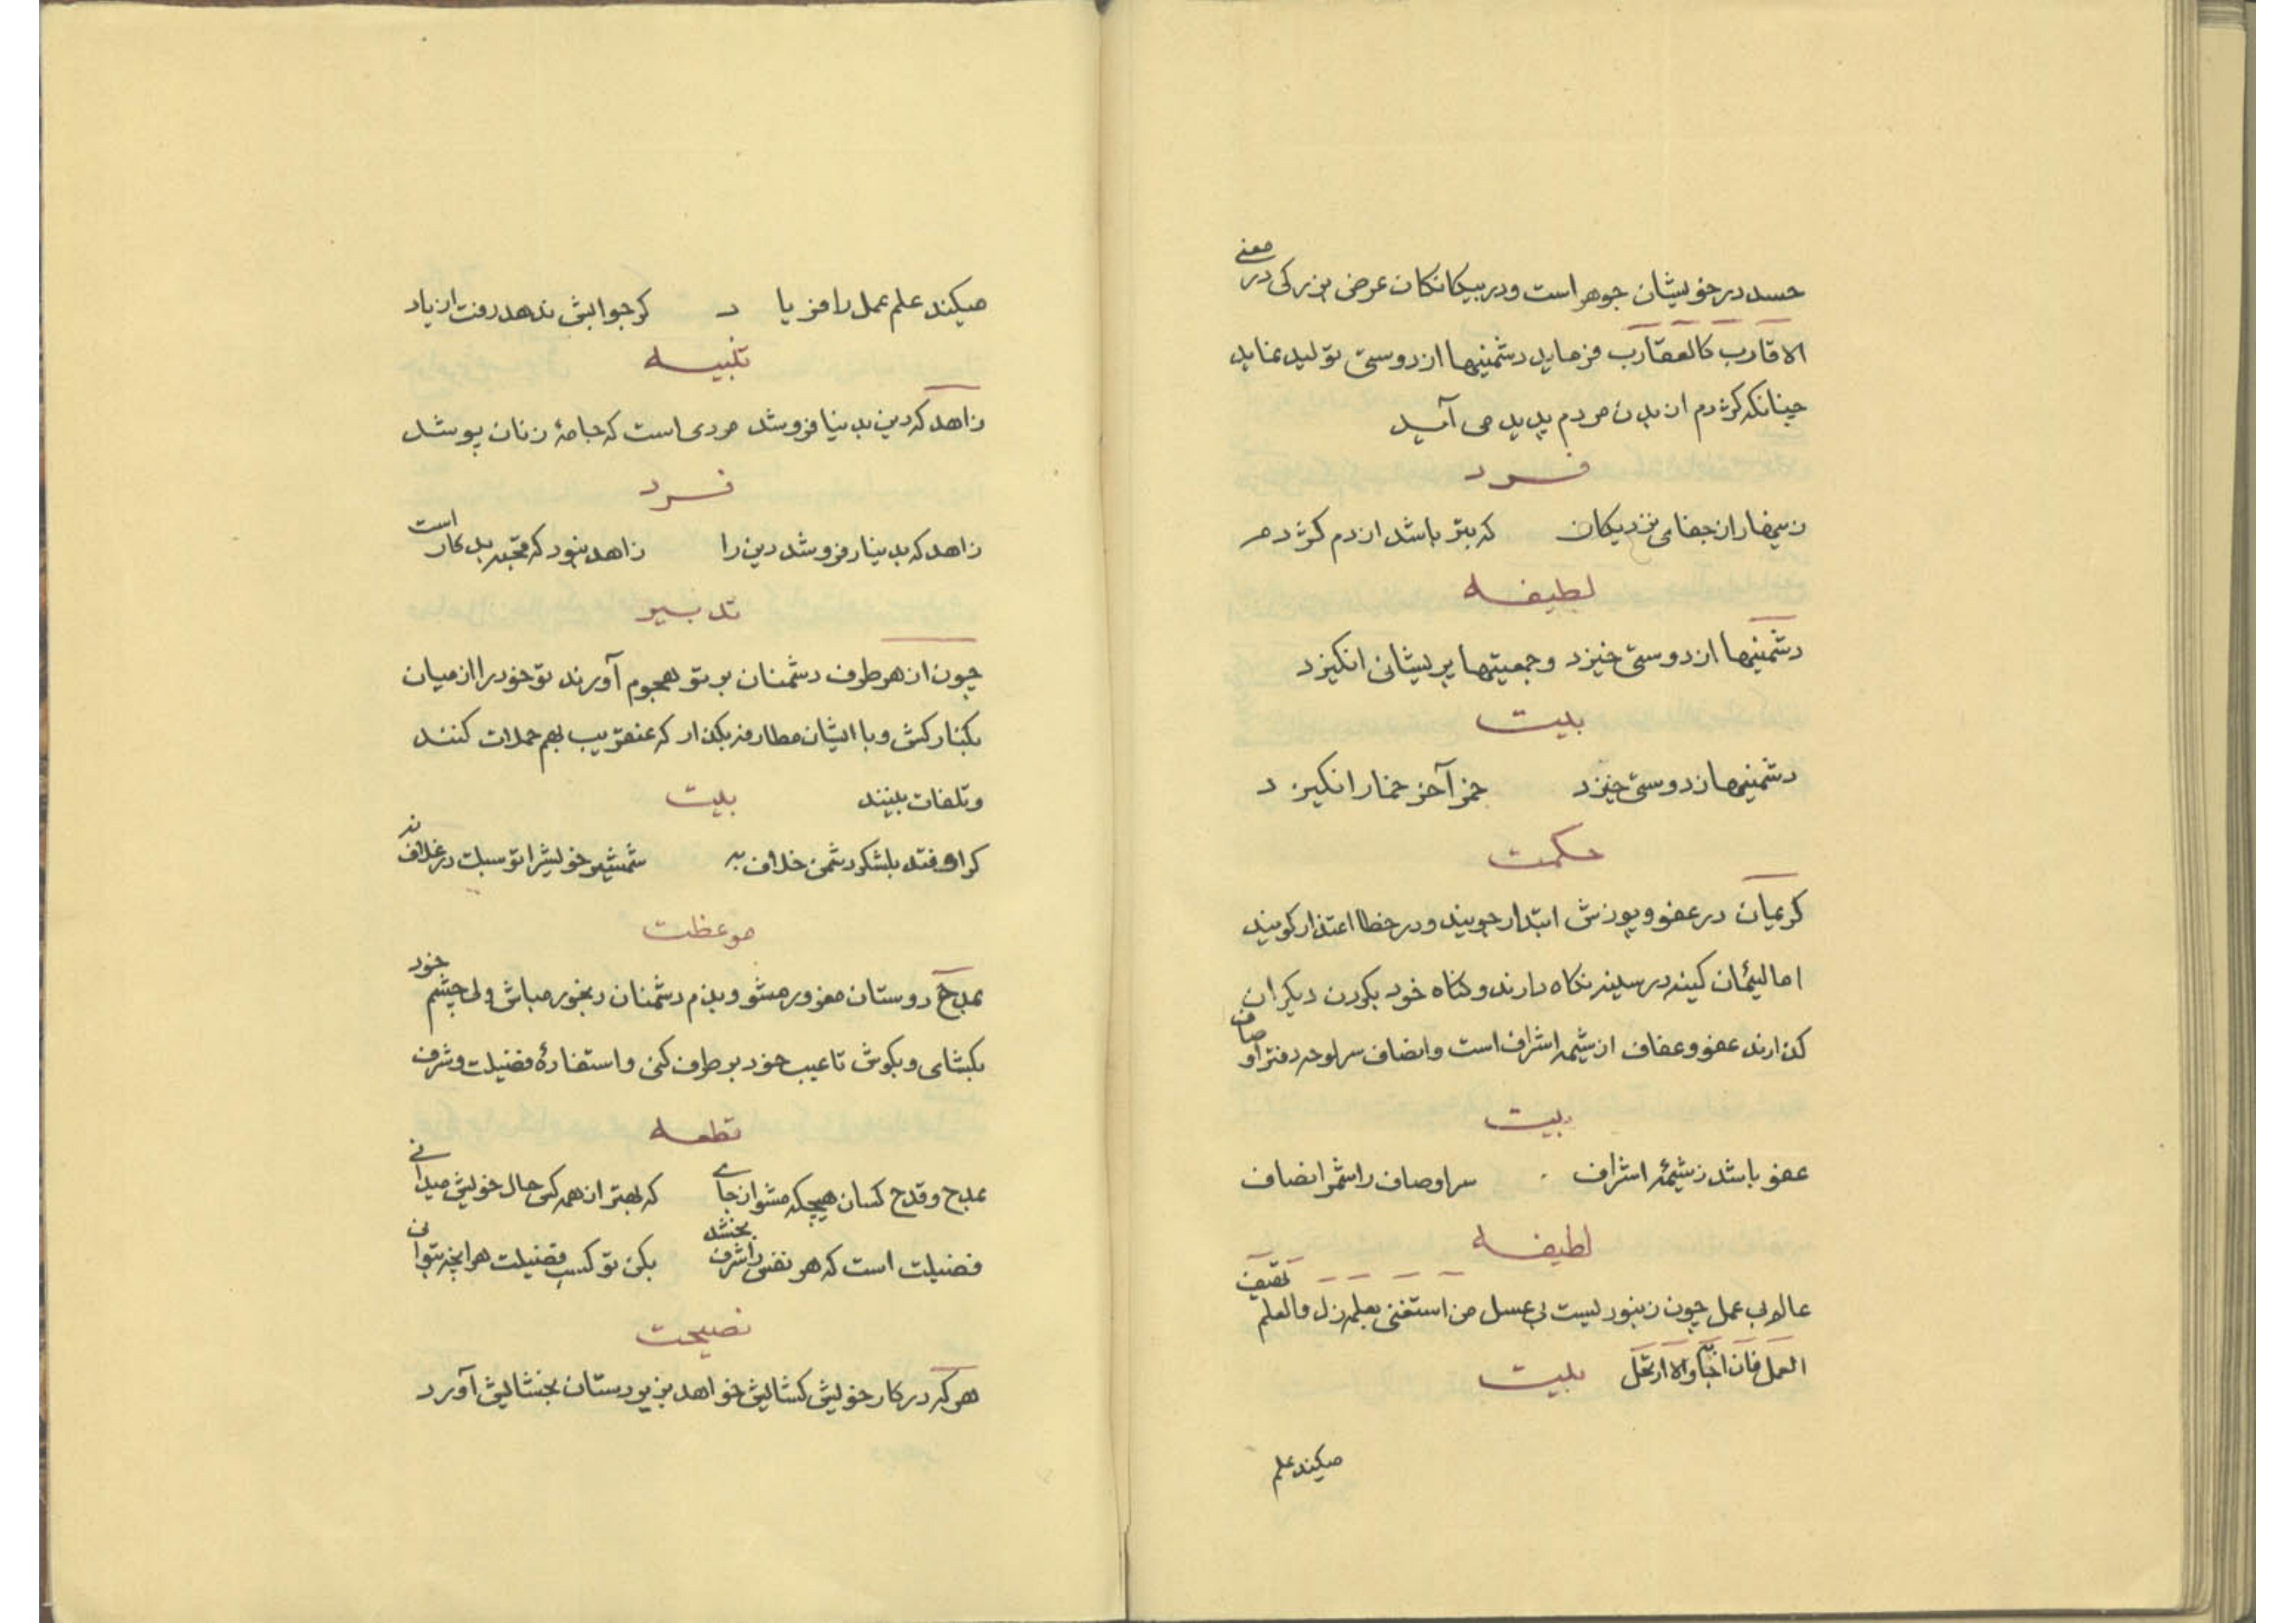 حسد در خویشان جوهر است و در بیکانکان عرض بزرکی در معنی
الاقارب کالعقارب فرماید دشمنیها از دوستی تولید نماید
چنانکه کژدم از بدن مردم پدید می آید
فرد
زینهار از جفای نزدیکان که بتر باشد از دم کژدم
لطیفه
دشمنیها از دوستی خیزد و جمعیتها پریشانی انکیزد
بیت
دشمنیها ز دوستی خیزد خمر آخر خمار انکیزد
حکمت
کریمان در عفو و پوزش ابتدار جویند و در خطا اعتذار کویند
اما لئیمان کینه در سینه نکاه دارند و کناه خود بکردن دیکران
کذارند عفو و عفاف از شیمه اشراف است و انصاف سرلوحه دفتر اوصاف
بیت
عفو باشد ز شیمهٔ اشراف سر اوصاف را شمر انصاف
لطیفه
عالم بی عمل چون زنبوریست بی عسل من استغنی بعلمه زل والعلم یهتف
العمل فان اجابه والا ارتحل بیت
میکند علم
میکند علم عمل را فریاد کر جوابش ندهد رفت از یاد
تنبیه
زاهد که دین بدنیا فروشد مردی است که جامهٔ زنان پوشد
فرد
زاهد که بدینار فروشد دین را زاهد نبود که قحبه بدکار است
تدبیر
چون از هر طرف دشمنان بر تو هجوم آورند تو خود را از میان
بکنار کش و با ایشان مطارفه بکذار که عنقریب بهم حملات کنند
و تلفات بینند بیت
کر اوفتد بلشکر دشمن خلاف به شمشیر خویش را تو سبلت در غلاف نه
موعظت
بمدح دوستان مغرور مشو و بذم دشمنان رنجور مباش ولی چشم خود
بکشای و بکوش تا عیب خود بر طرف کنی و استفادهٔ فضیلت و شرف
قطعه
بمدح و قدح کسان هیچکه مشو از جای که بهتر از همه کس حال خویش میدانی
فضیلت است که هر نفس را شرف بخشد بکن تو کسب فضیلت هر انچه بتوانی
نصیحت
هر که در کار خویش کشایش خواهد بزیردستان بخشایش آورد